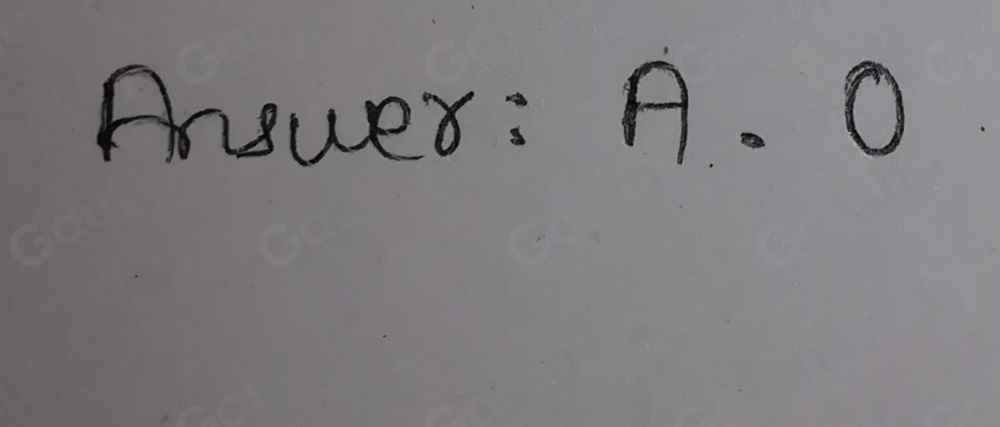 Answer: A. 0